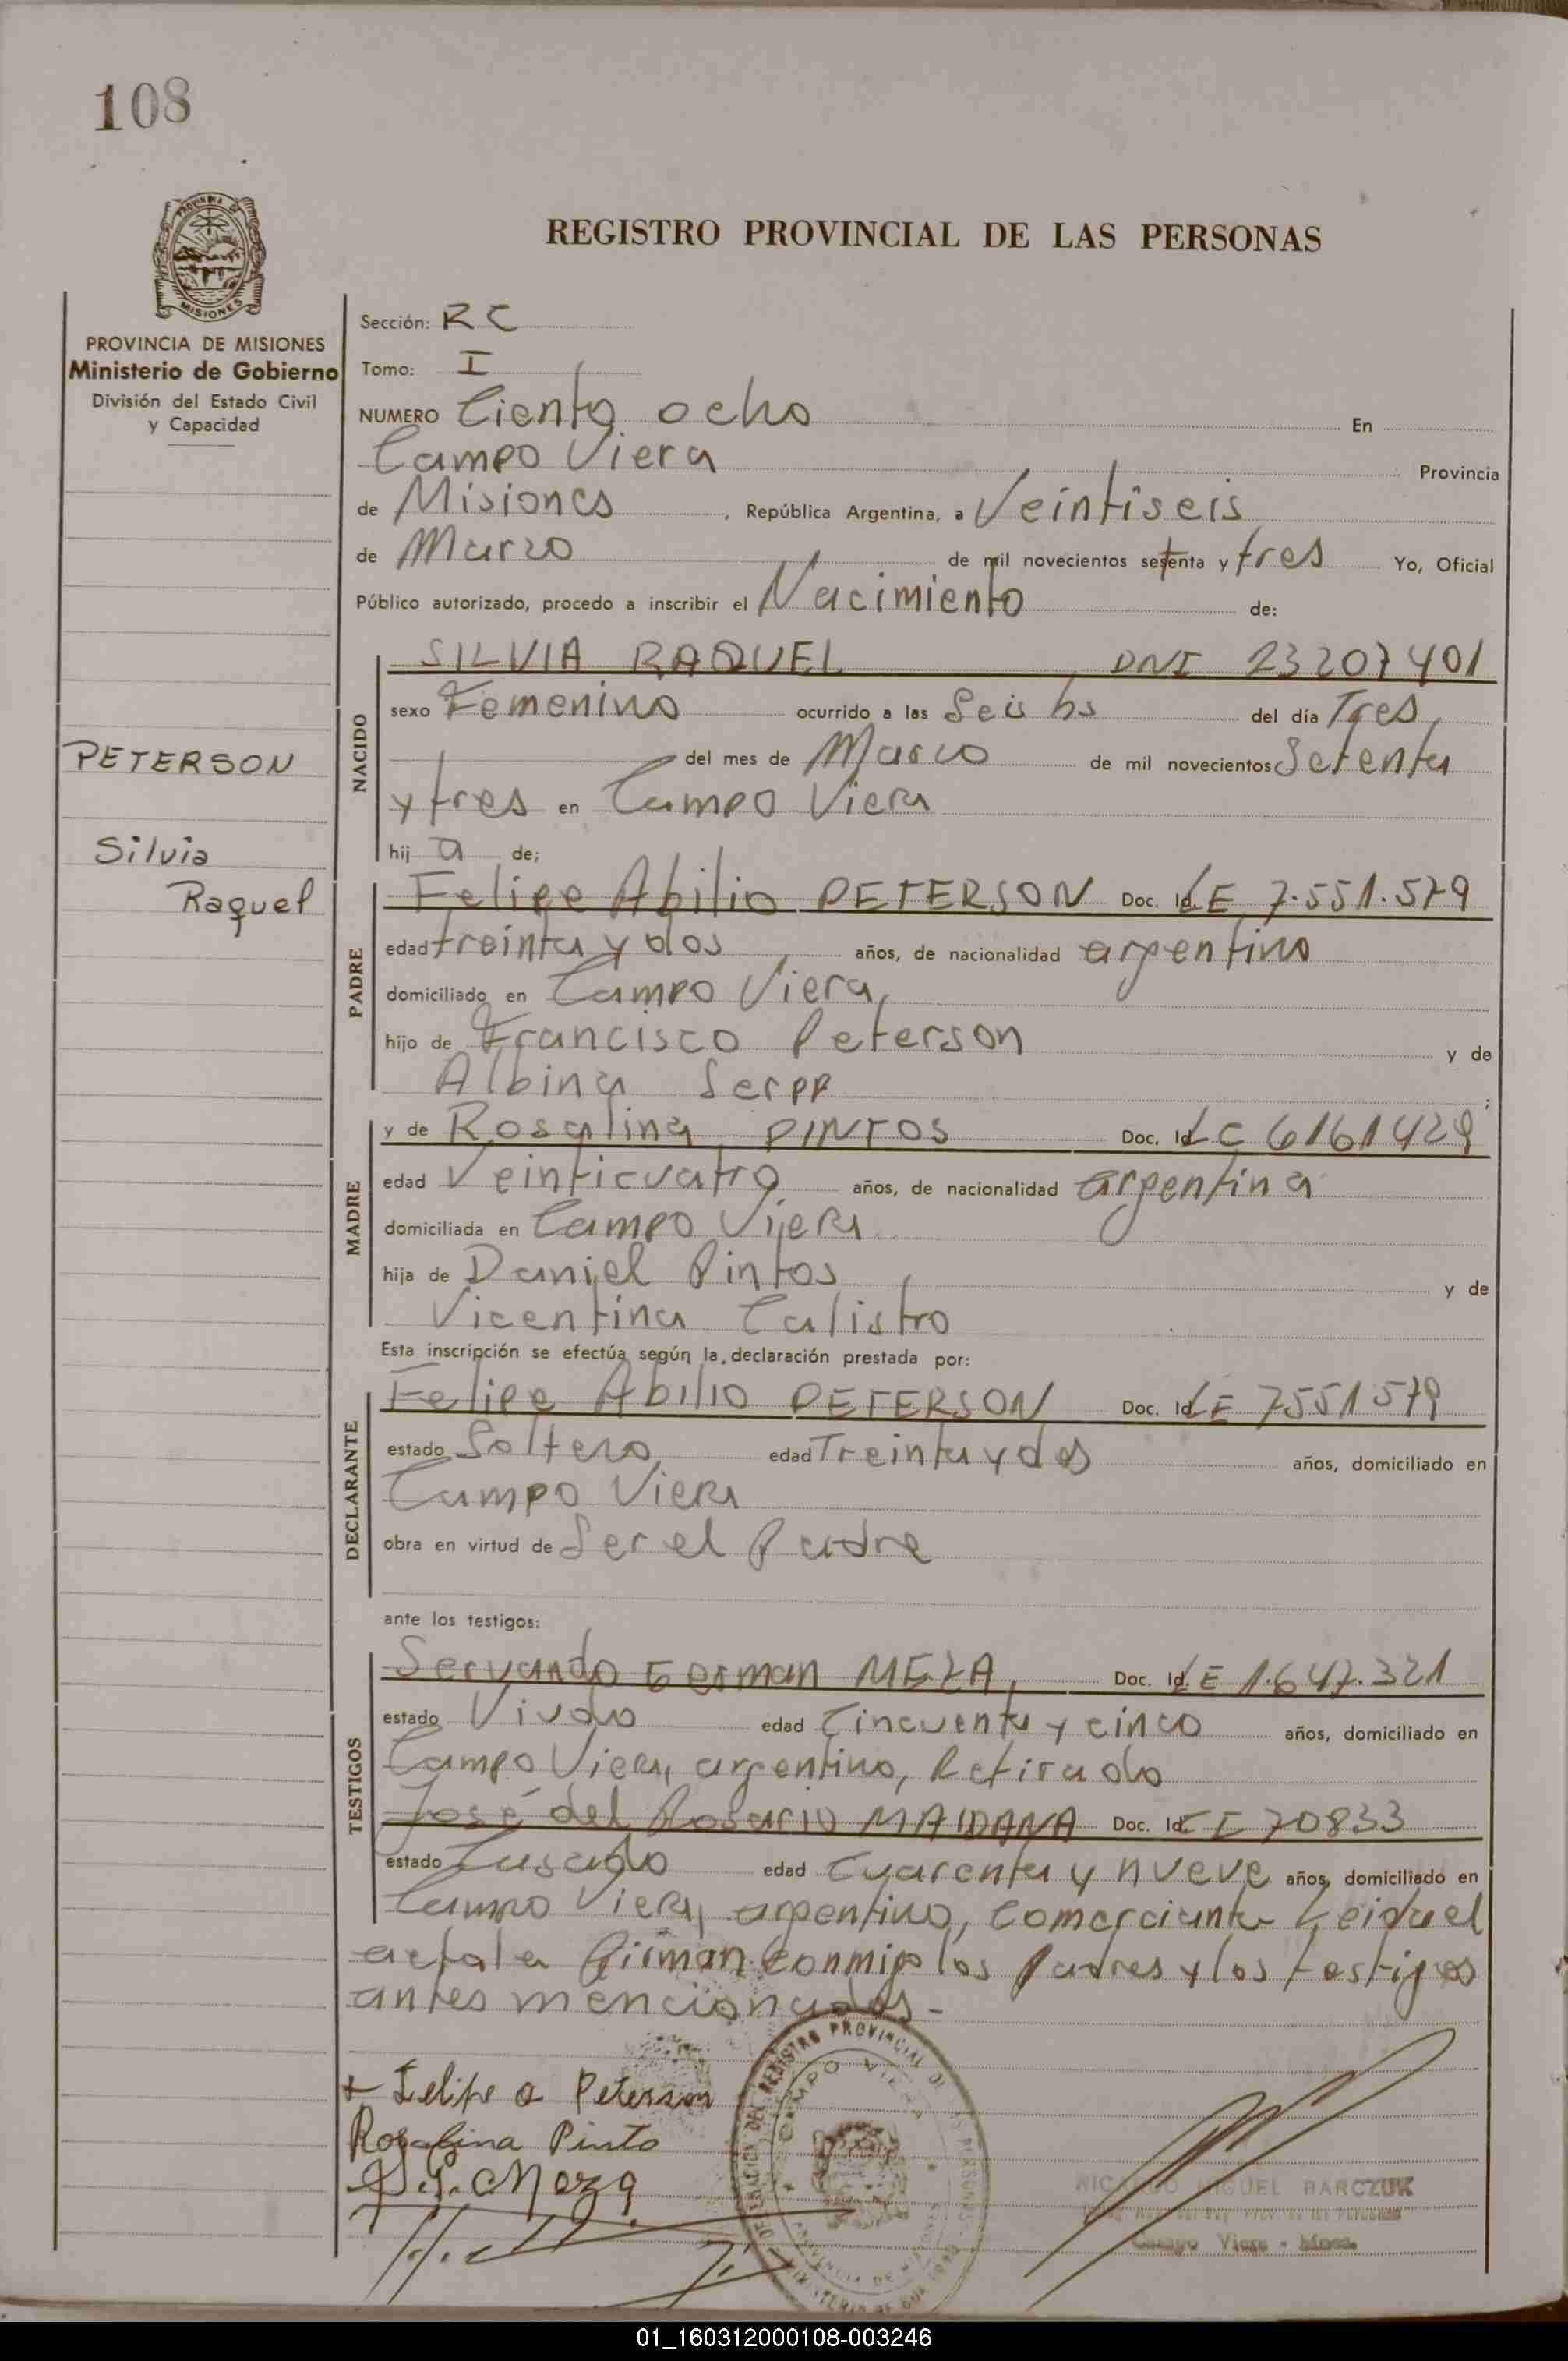 108
PROVINCIA DE MISIONES
Ministerio de Gobierno
División del Estado Civil
y Capacidad
PETERSON
Silvia
Raquel
REGISTRO PROVINCIAL DE LAS PERSONAS
Sección: RC
Tomo: I
NUMERO Ciento ocho En
Campo Viera Provincia
de Misiones, República Argentina, a Veintiseis
de Marzo de mil novecientos setenta y tres Yo, Oficial
Público autorizado, procedo a inscribir el Nacimiento de:
NACIDO
SILVIA RAQUEL DNI 23207401
sexo Femenino ocurrido a las Seis hs del día Tres,
del mes de Marzo de mil novecientos Setenta
y tres en Campo Viera
hij a de;
PADRE
Felipe Abilio PETERSON Doc. Id. LE 7.551.579
edad treinta y dos años, de nacionalidad argentino
domiciliado en Campo Viera,
hijo de Francisco Peterson y de
Albina Serpp ;
MADRE
y de Rosalina PINTOS Doc. Id. LC 6161429
edad Veinticuatro años, de nacionalidad argentina
domiciliada en Campo Viera
hija de Daniel Pintos y de
Vicentina Calistro
Esta inscripción se efectúa según la declaración prestada por:
DECLARANTE
Felipe Abilio PETERSON Doc. Id. LE 7551579
estado Soltero edad Treinta y dos años, domiciliado en
Campo Viera
obra en virtud de Ser el Padre
ante los testigos:
TESTIGOS
Servando German MEZA, Doc. Id. LE 1.647.321
estado Viudo edad Cincuenta y cinco años, domiciliado en
Campo Viera, argentino, Retirado
José del Rosario MAIDANA Doc. Id. CI 70833
estado Casado edad Cuarenta y nueve años, domiciliado en
Campo Viera, argentino, Comerciante Leida el
acta la firman conmigo los Padres y los testigos
antes mencionados.-
+ Felipe a Peterson
Rosalina Pinto
S.G. Meza
DELEGACION DEL REGISTRO PROVINCIAL DE LAS PERSONAS
CAMPO VIERA
PROVINCIA DE MISIONES
MINISTERIO DE GOBIERNO
RICARDO MIGUEL BARCZUK
Campo Viera - Mnes.
01_160312000108-003246